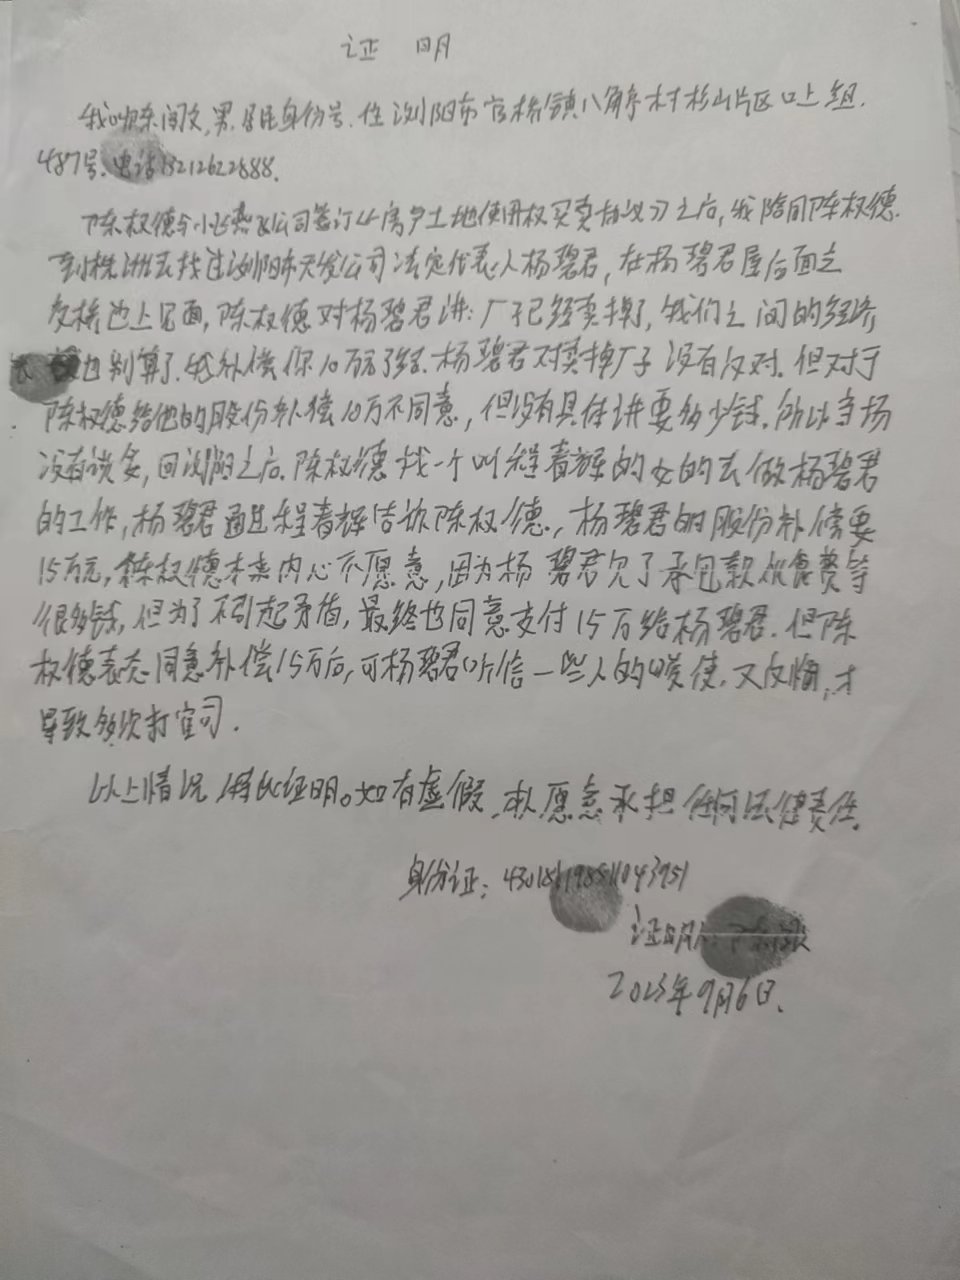 证 明
我叫陈闯文,男,居民身份号.住浏阳市官桥镇八角亭村杉山片区口上组.
487号.电话18212622888.
陈权德与小 公司签订厂房及土地使用权买卖协议 之后,我陪同陈权德.
到株洲去找过浏阳市天发公司法定代表人杨碧君,在杨碧君屋后面之
反 池上见面,陈权德对杨碧君讲:厂子已经卖掉了,我们之间的经济
也别算了.我补偿你10万元了结.杨碧君对卖掉厂子没有反对.但对于
陈权德给他的股份补偿10万不同意,但没有具体讲要多少钱.所以当场
没有谈妥,回浏阳之后.陈权德找一个叫程春辉的女的去做杨碧君
的工作,杨碧君通过程春辉告诉陈权德,杨碧君的股份补偿要
15万元,陈权德本来内心不愿意,因为杨碧君欠了承包款伙食费等
很多钱,但为了不引起矛盾,最终也同意支付15万给杨碧君.但陈
权德表态同意补偿15万后,可杨碧君听信一些人的唆使.又反悔,才
导致多次打官司.
以上情况,特此证明。如有虚假,本人愿意承担任何法律责任.
身份证:430181198511043951
证明人:
2023年9月6日.